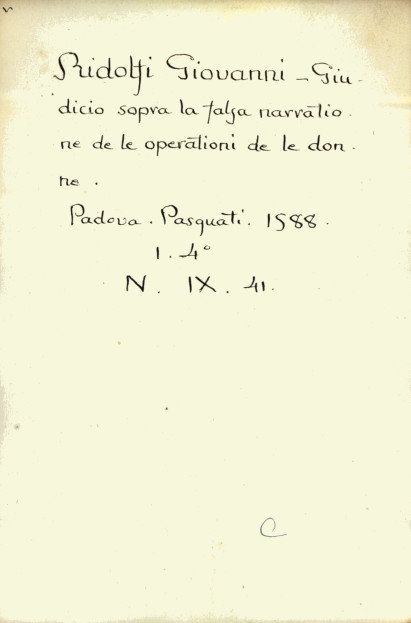 Ridolfi Giovanni - Giu-
dicio sopra la falsa narratio-
ne de le operationi de le don-
ne.
Padova. Pasquati. 1588.
1. 4°
N. IX. 41.
C